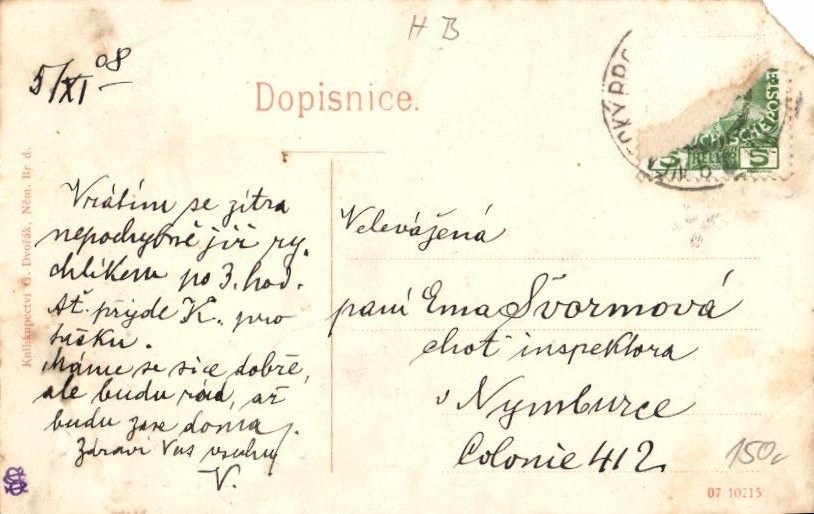 H B
5/XI 08
Dopisnice.
Vrátím se zítra
nepochybně již ry-
chlíkem po 3. hod.
Ať přijde K. pro
tašku.
Máme se sice dobře,
ale budu rád, až
budu zase doma.
Zdraví Vás všechny
V.
Velevážená
paní Ema Švormová
choť inspektora
v Nymburce
Colonie 412
Knihkupectví G. Dvořák, Něm. Br d.
5 HELLER 5
150,-
07 10215